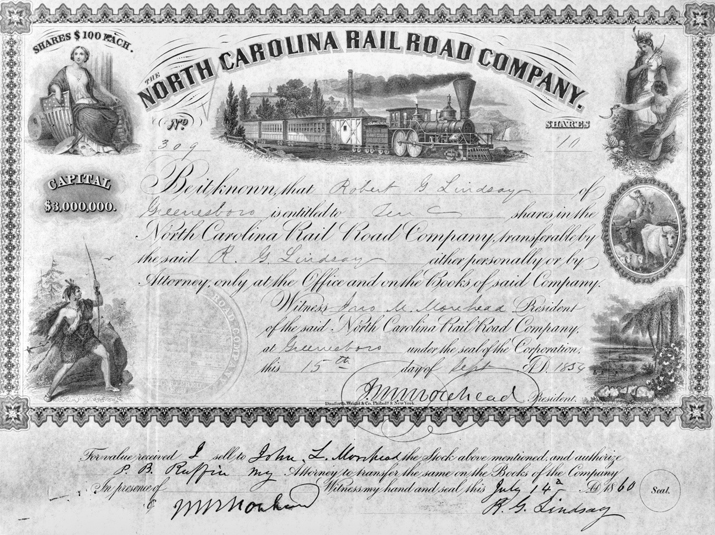 SHARES $100 EACH.
THE
NORTH CAROLINA RAIL ROAD COMPANY.
No.
309
SHARES
10
CAPITAL
$3,000,000.
Be it known, that Robert G Lindsay of
Greensboro is entitled to Ten shares in the
North Carolina Rail Road Company, transferable by
the said R. G. Lindsay either personally or by
Attorney, only at the Office and on the Books of said Company.
Witness Jno M. Morehead President
of the said North Carolina Rail Road Company,
at Greensboro under the seal of the Corporation,
this 15th day of Sept A.D. 1854
J M Morehead President.
For value received I sell to John L. Morehead the Stock above mentioned, and authorize
P. B. Ruffin my Attorney to transfer the same on the Books of the Company
In presence of Witness my hand and seal this July 14th A.D. 1860
J M Morehead
R. G. Lindsay
Seal.